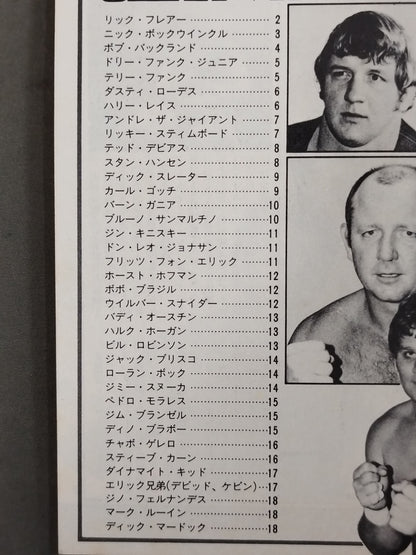 リック・フレアー…………………2
ニック・ボックウインクル…………3
ボブ・バックランド………………4
ドリー・ファンク・ジュニア………5
テリー・ファンク…………………5
ダスティ・ローデス………………6
ハリー・レイス……………………6
アンドレ・ザ・ジャイアント………7
リッキー・スティムボード…………7
テッド・デビアス…………………8
スタン・ハンセン…………………8
ディック・スレーター……………9
カール・ゴッチ……………………9
バーン・ガニア……………………10
ブルーノ・サンマルチノ…………10
ジン・キニスキー…………………11
ドン・レオ・ジョナサン…………11
フリッツ・フォン・エリック……11
ホースト・ホフマン………………12
ボボ・ブラジル……………………12
ウイルバー・スナイダー…………12
パディ・オースチン………………13
ハルク・ホーガン…………………13
ビル・ロビンソン…………………13
ジャック・ブリスコ………………14
ローラン・ボック…………………14
ジミー・スヌーカ…………………14
ペドロ・モラレス…………………15
ジム・ブランゼル…………………15
ディノ・ブラボー…………………15
チャボ・ゲレロ……………………16
スティーブ・カーン………………16
ダイナマイト・キッド……………17
エリック兄弟(デビッド、ケビン)…17
ジノ・フェルナンデス……………18
マーク・ルーイン…………………18
ディック・マードック……………18